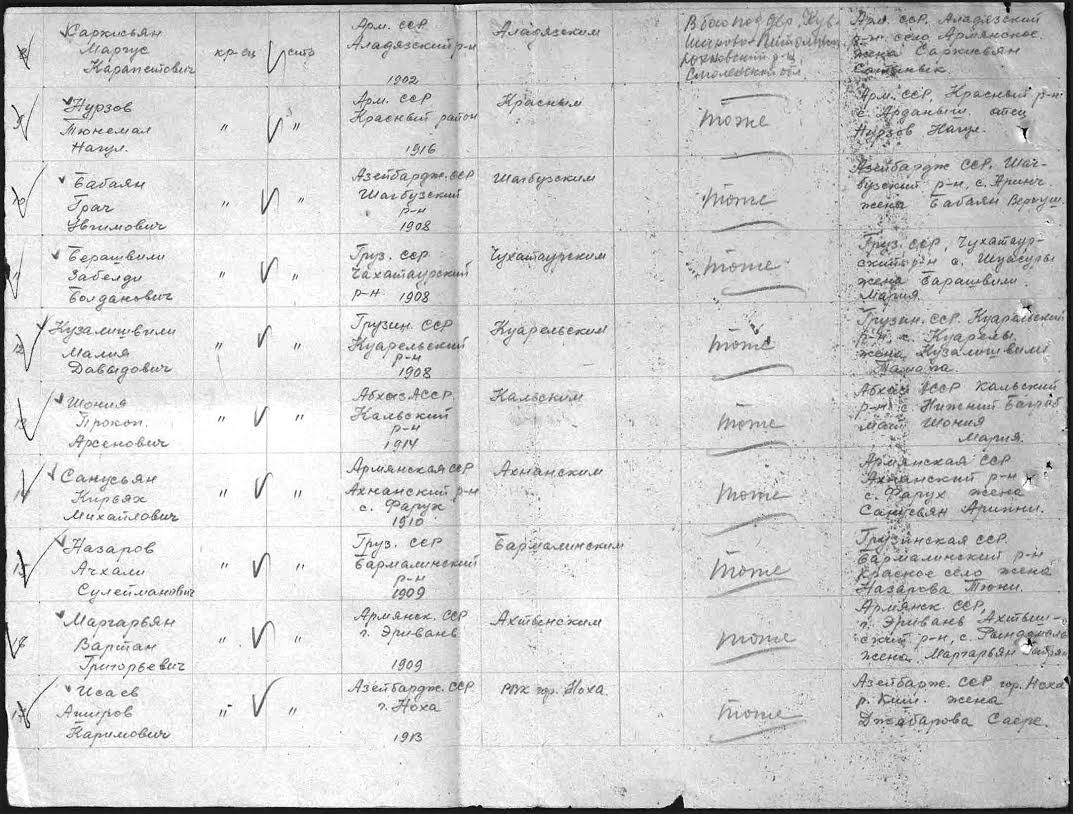 8 Саркисьян
Маргус
Карапетович
кр-ец
Арм. ССР
Аладязский р-н
1902
Аладязским
В бою под дер.
Смоленской обл
Арм. ССР, Аладязский
р-н, село Армянское
жена Саркисьян
9 Нурзов
Тюнемал
Нагул.
"
"
Арм. ССР
Красный район
1916
Красным
тоже
Арм. ССР, Красный р-н
с. Арданыш. отец
Нурзов Нагул.
10 Бабаян
Грач
"
"
Азейбардж. ССР
Шагбузский
р-н
1908
Шагбузским
тоже
Азейбардж ССР. Шаг-
бузский р-н, с. Аринч.
жена Бабаян Вергуш.
11 Берашвили
Забелди
Болданович
"
"
Груз. ССР
Чахатаурский
р-н 1908
Чухатаурским
тоже
Груз. ССР, Чухатаур-
ский р-н с. Шуасуры
жена Барашвили
Мария.
12 Кузалишвили
Малия
Давыдович
"
"
Грузин. ССР
Куарельский
р-н
1908
Куарельским
тоже
Грузин. ССР. Куарельский
р-н, с. Куарелы
жена Кузалишвили
Тамара.
13 Шония
Прокоп.
Арсенович
"
"
Абхаз АССР.
Кальский
р-н
1914
Кальским
тоже
Абхаз АССР Кальский
р-н с. Нижний
мать Шония
Мария.
14 Санусьян
Кирьях
Михайлович
"
"
Армянская ССР
Ахнанский р-н
с. Фарух
1910
Ахнанским
тоже
Армянская ССР
Ахнанский р-н
с. Фарух жена
Санусьян Арипни.
15 Назаров
Ачхали
Сулейманович
"
"
Груз. ССР
Бармалинский
р-н
1909
Бармалинским
тоже
Грузинская ССР.
Бармалинский р-н
Красное село жена
Назарова Тюни.
16 Маргарьян
Вартан
Григорьевич
"
"
Армянск. ССР
г. Эривань
1909
Ахтинским
тоже
Армянск. ССР,
г. Эривань
р-н, с.
жена Маргарьян
17 Исаев
Амиров
Каримович
"
"
Азейбардж. ССР
г. Ноха
1913
РВК гор. Ноха.
тоже
Азейбардж. ССР гор. Ноха
р. Киш. жена
Джабарова Саере.